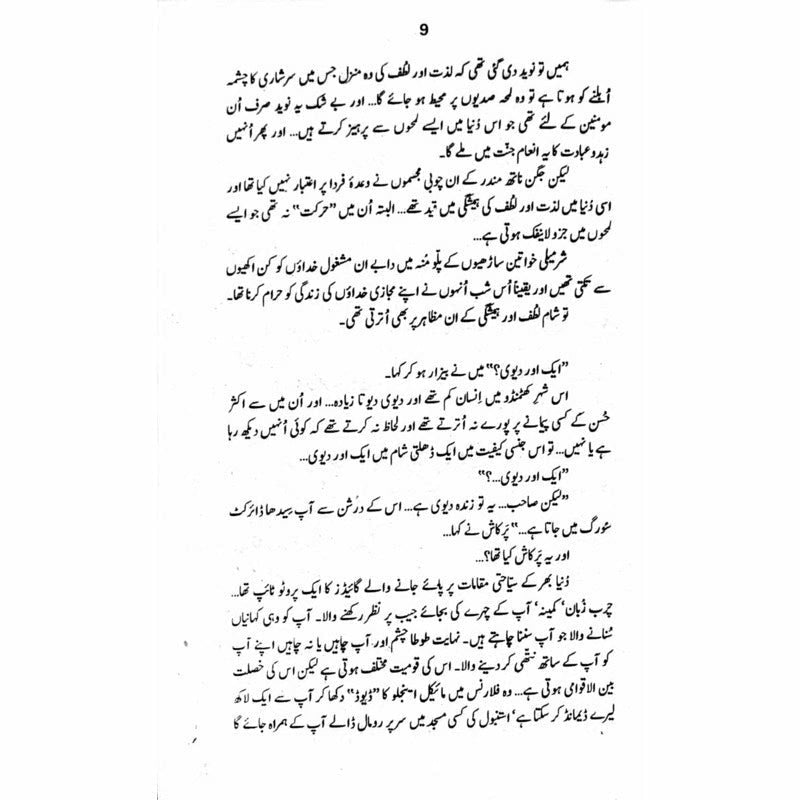 9
ہمیں تو نوید دی گئی تھی کہ لذت اور لطُف کی وہ منزل جس میں سرشاری کا چشمہ
اُبلنے کو ہوتا ہے تو وہ لمحہ صدیوں پر محیط ہو جائے گا... اور بے شک یہ نوید صرف اُن
مومنین کے لئے تھی جو اس دُنیا میں ایسے لمحوں سے پرہیز کرتے ہیں... اور پھر اُنہیں
زہد و عبادت کا یہ انعام جنّت میں ملے گا۔
لیکن جگن ناتھ مندر کے ان چوبی مجسموں نے وعدۂ فردا پر اعتبار نہیں کیا تھا اور
اسی دُنیا میں لذت اور لطُف کی ہیشگی میں قید تھے... البتہ اُن میں ”حرکت“ نہ تھی جو ایسے
لمحوں میں جزو لاینفک ہوتی ہے...
شرمیلی خواتین ساڑھیوں کے پلّو مُنہ میں دابے ان مشغول خداؤں کو کن اکھیوں
سے تکتی تھیں اور یقیناً اُس شب اُنہوں نے اپنے مجازی خداؤں کی زندگی کو حرام کرنا تھا۔
تو شام لطُف اور ہیشگی کے ان مظاہر پر بھی اُترتی تھی۔
”ایک اور دیوی؟“ میں نے بیزار ہو کر کہا۔
اس شہر کھٹمنڈو میں اِنسان کم تھے اور دیوی دیوتا زیادہ... اور اُن میں سے اکثر
حُسن کے کسی پیمانے پر پورے نہ اُترتے تھے اور لحاظ نہ کرتے تھے کہ کوئی اُنہیں دیکھ رہا
ہے یا نہیں... تو اس جنسی کیفیت میں ایک ڈھلتی شام میں ایک اور دیوی...
”ایک اور دیوی...؟“
”لیکن صاحب... یہ تو زندہ دیوی ہے... اس کے درشن سے آپ سیدھا ڈائرکٹ
سورگ میں جاتا ہے...“ پَرکاش نے کہا...
اور یہ پَرکاش کیا تھا؟...
دُنیا بھر کے سیّاحتی مقامات پر پائے جانے والے گائیڈز کا ایک پروٹو ٹائپ تھا...
چرب زُبان‘ کمینہ‘ آپ کے چہرے کی بجائے جیب پر نظر رکھنے والا۔ آپ کو وہی کہانیاں
سُنانے والا جو آپ سننا چاہتے ہیں۔ نہایت طوطا چشم اور آپ چاہیں یا نہ چاہیں اپنے آپ
کو آپ کے ساتھ نتھی کر دینے والا۔ اس کی قومیت مختلف ہوتی ہے لیکن اس کی خصلت
بین الاقوامی ہوتی ہے... وہ فلارنس میں مائیکل اینجلو کا ”ڈیوڈ“ دکھا کر آپ سے ایک لاکھ
لیرے ڈیمانڈ کر سکتا ہے‘ استنبول کی کسی مسجد میں سر پر رومال ڈالے آپ کے ہمراہ جائے گا